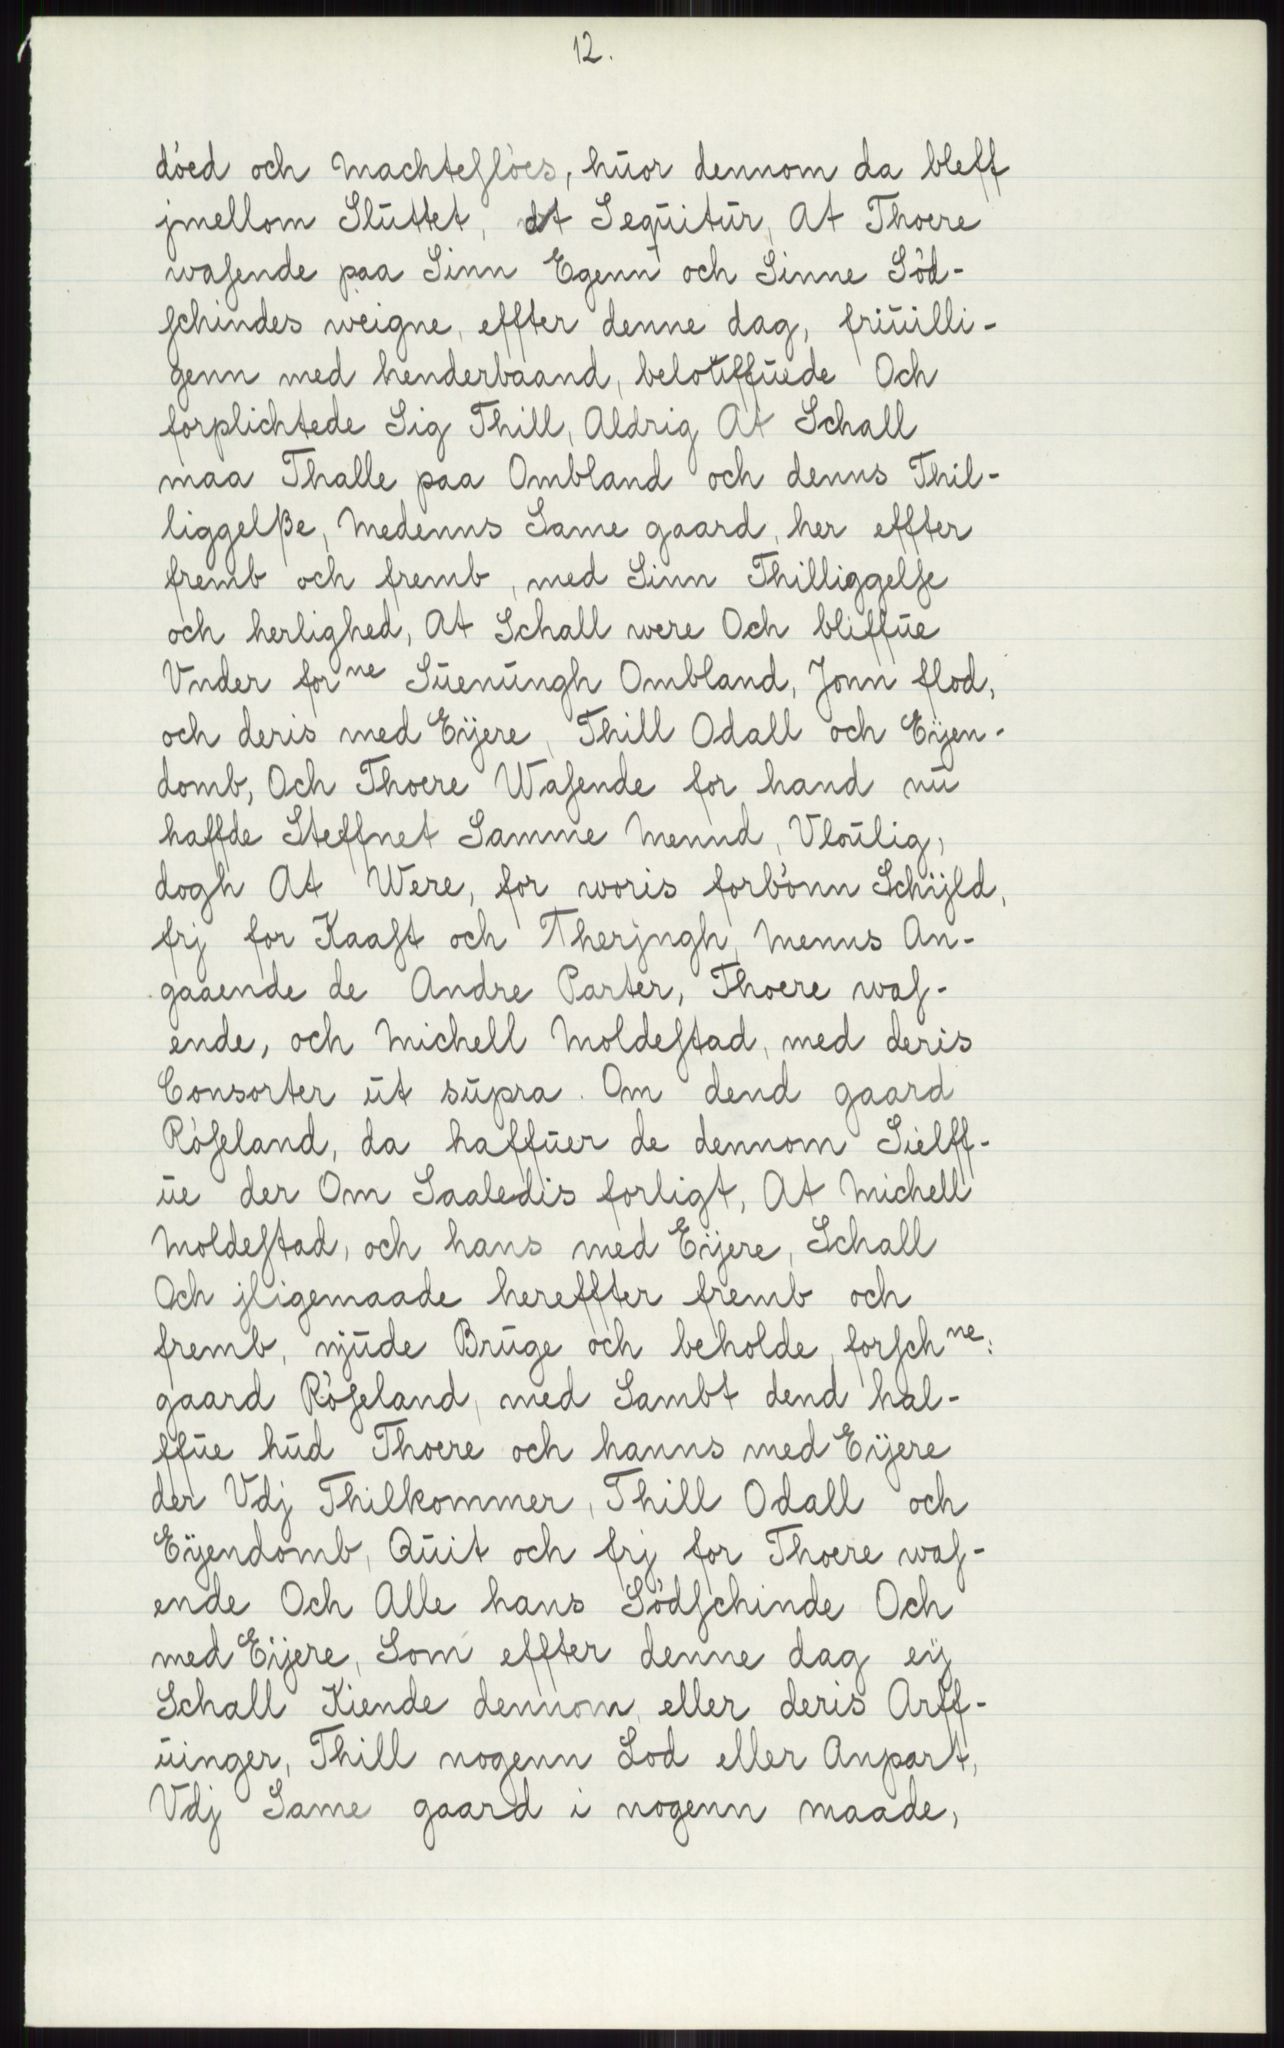 12.
döed och Machteslöes, huor dennom da bleff
jmellom Sluttet, ut Sequitur, At Thoere
wasende paa Sinn Egenn och Sinne Söd-
schindes weigne, effter denne dag, friuilli-
genn med henderbaand, beloffuede Och
forplichtede Sig Thill, Aldrig At Schall
maa Thalle paa Ombland och denns Thil-
liggelße, Medenns Same gaard, her effter
fremb och fremb, med Sinn Thilliggelse
och herlighed, At Schall were Och bliffue
Vnder for ne Suenungh Ombland, Jonn flod,
och deris med Eijere, Thill Odall och Eijen-
domb, Och Thoere Wasende for hand nu
haffde Steffnet Samme Mennd, Vloulig,
dogh At Were, for woris forbönn Schijld,
frj for Kaast och Therjngh, Menns An-
gaaende de Andre Parter, Thoere was-
ende, och Michell Moldestad, med deris
Consorter ut supra. Om dend gaard
Röseland, da haffuer de dennom Sielff-
ue der Om Saaledis forligt, At Michell
Moldestad, och hans med Eijere, Schall
Och jligemaade hereffter fremb och
fremb, njude Bruge och beholde, forsch ne:
gaard Röseland, med Sambt dend hal-
ffue hud Thoere och hanns med Eijere
der Vdj Thilkommer, Thill Odall och
Eijendomb, Quit och frj for Thoere was-
ende Och Alle hans Södschinde Och
med Eijere, Som effter denne dag eij
Schall Kiende dennom, eller deris Arff-
uinger, Thill nogenn Lod eller Anpart,
Vdj Same gaard i nogenn maade,